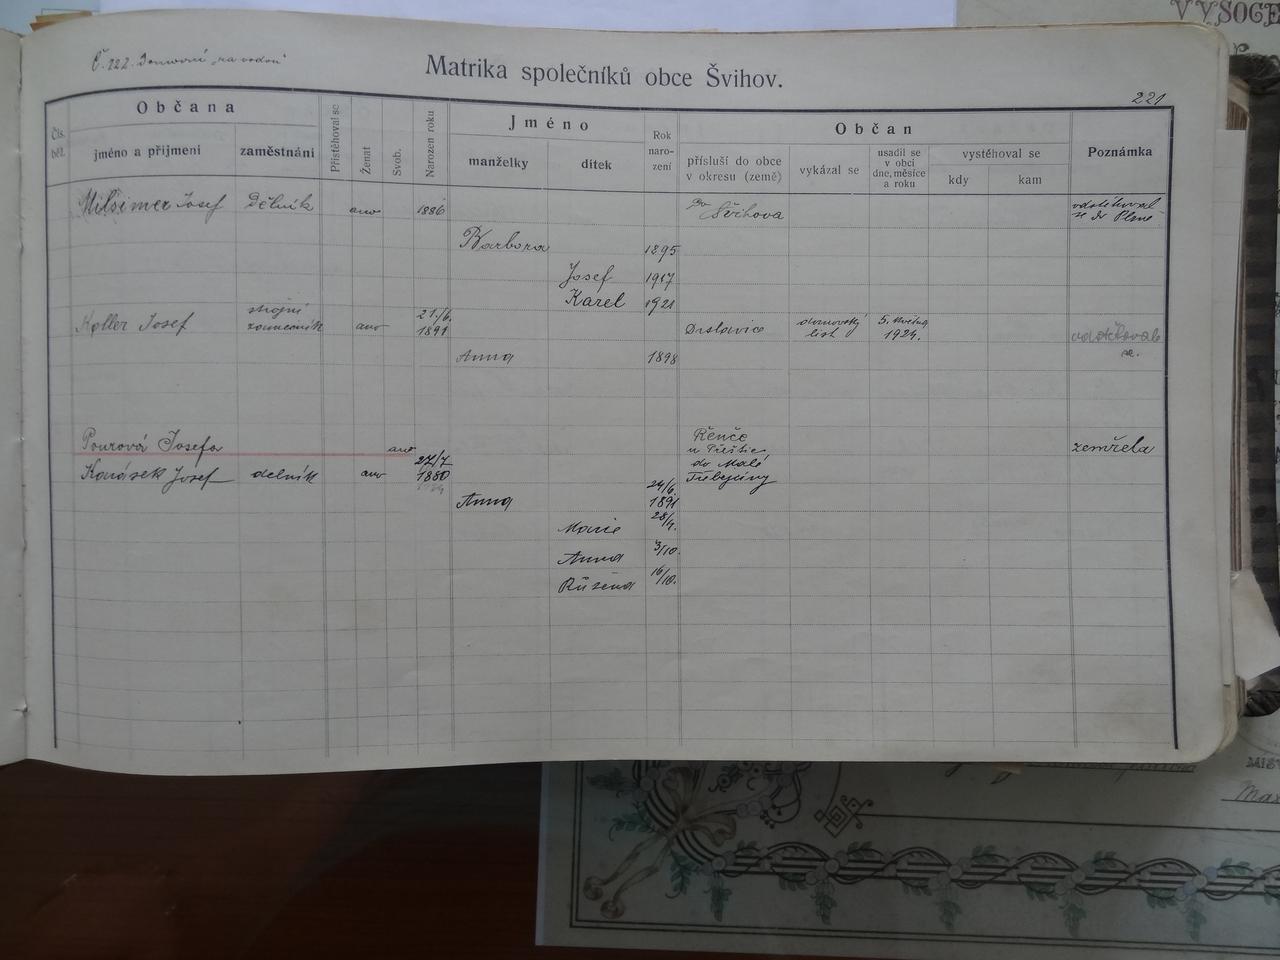 Č. 222.
Matrika společníků obce Švihov.
221
Čís. běž.
Občana
jméno a příjmení
zaměstnání
Přistěhoval se
Ženat
Svob.
Narozen roku
Jméno
manželky
dítek
Rok
naro-
zení
Občan
přísluší do obce
v okresu (země)
vykázal se
usadil se
v obci
dne, měsíce
a roku
vystěhoval se
kdy
kam
Poznámka
Josef Dělník ano 1886 do Švihova odstěhoval
se do Plzně
Barbora 1895
Josef 1917
Karel 1921
Koller Josef strojní
zámečník ano 21./6.
1891 Drslavice domovský
list 5. května
1924. odstěhoval
se.
Anna 1898
Pourová Josefa ano Řenče
u Přeštic zemřela
Josef delník ano 27/7
1880 do Malé
Anna 24/6.
1891
Marie 28/4.
Anna 3/10.
Růžena 16/10.
VYSOCE